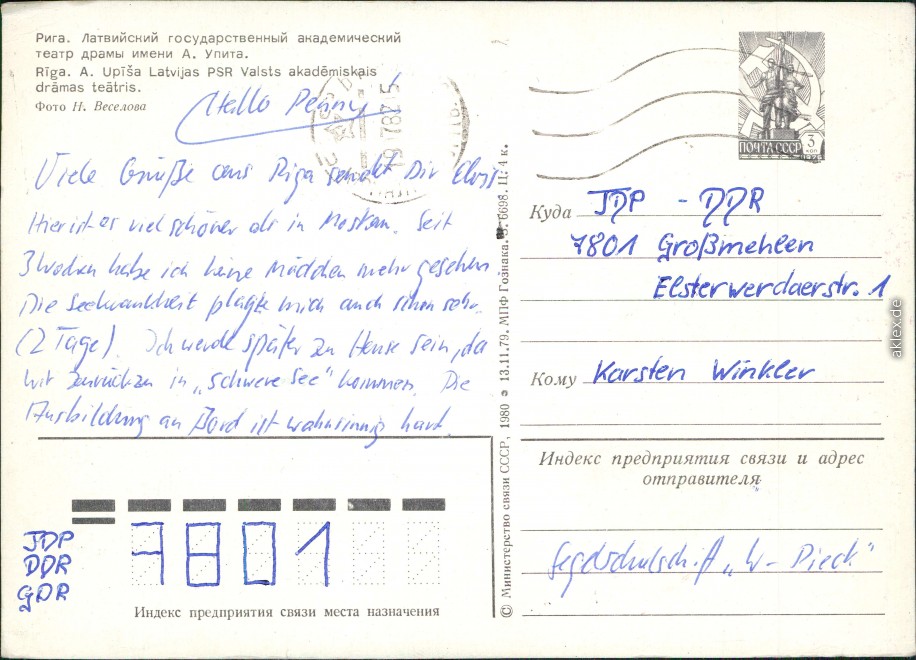 Рига. Латвийский государственный академический
театр драмы имени А. Упита.
Rīga. A. Upīša Latvijas PSR Valsts akadēmiskais
drāmas teātris.
Фото Н. Веселова
Hallo Penny!
Viele Grüße aus Riga sendet Dir
Hier ist es viel schöner als in Moskau. Seit
3 Wochen habe ich keine Mädchen mehr gesehen.
Die Seekrankheit plagte mich auch schon sehr.
(2 Tage). Ich werde später zu Hause sein, da
wir zurückzu in "schwere See" kommen. Die
Ausbildung an Bord ist wahnsinnig hart.
ПОЧТА СССР 3 КОП
Куда JDP - DDR
7801 Großmehlen
Elsterwerdaerstr. 1
Кому Karsten Winkler
Индекс предприятия связи и адрес
отправителя
Segelschulschiff "W- Pieck"
JDP
DDR
GDR
7801
Индекс предприятия связи места назначения
© Министерство связи СССР, 1980 13.11.79. МПФ Гознака. З. 6698. Ц. 4 к.
aklex.de